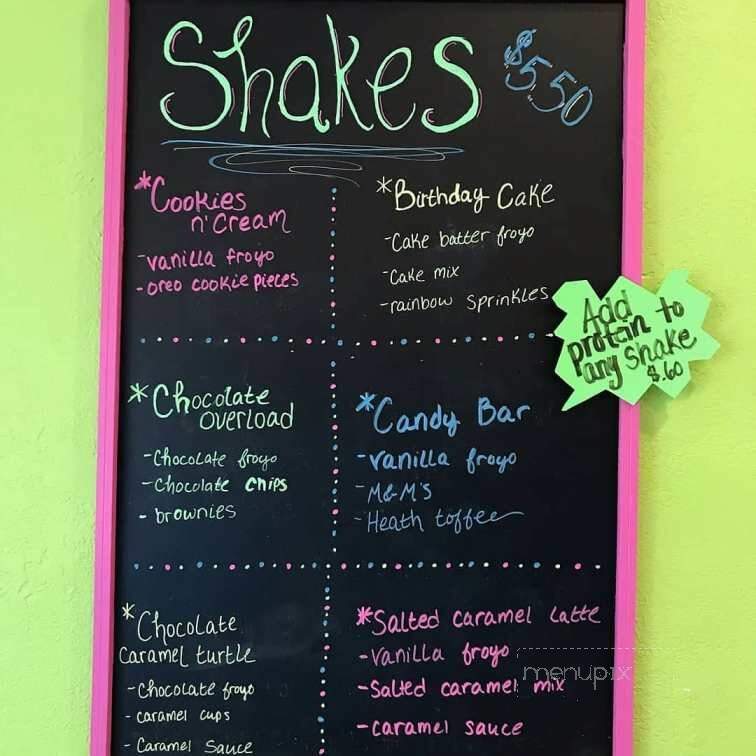 Shakes $5.50
*Cookies
n' Cream
-vanilla froyo
-oreo cookie pieces
*Birthday Cake
-Cake batter froyo
-Cake mix
-rainbow sprinkles
Add
protein to
any Shake
$.60
*Chocolate
overload
-Chocolate froyo
-Chocolate chips
- brownies
*Candy Bar
-vanilla froyo
-M&M'S
-Heath toffee
*Chocolate
Caramel turtle
-Chocolate froyo
- caramel cups
- Caramel Sauce
*Salted caramel latte
-Vanilla froyo
-Salted caramel mix
-caramel sauce
menupix